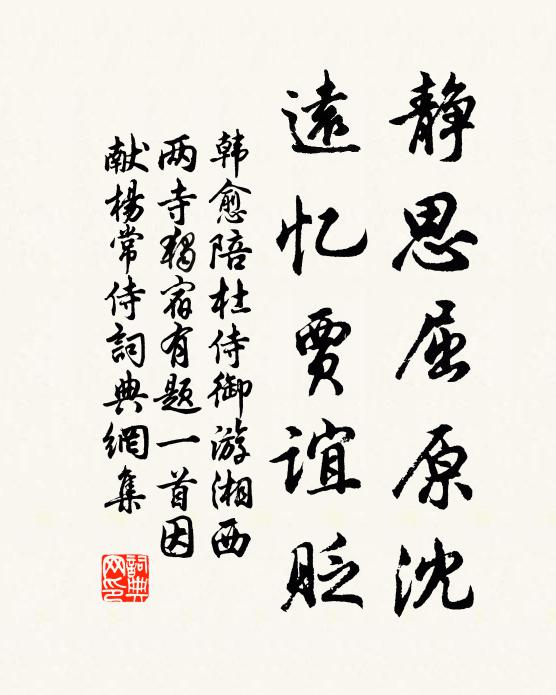 静思屈原沈
遠忆贾谊贬
韩愈陪杜侍御游湘西
两寺獨宿有题一首因
献楊常侍詞典網集
詞典
网印